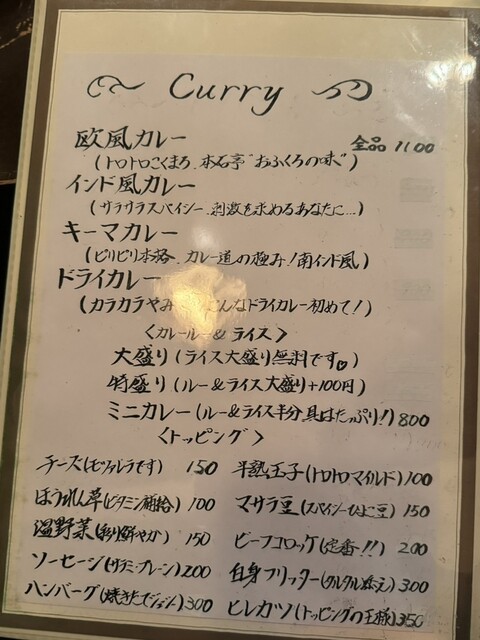 Curry
欧風カレー 全品1100
(トロトロこくまろ、本石亭"おふくろの味")
インド風カレー
(サラサラスパイシー、刺激を求めるあなたに…)
キーマカレー
(ピリピリ本格、カレー道の極み!南インド風)
ドライカレー
(カラカラやみ こんなドライカレー初めて!)
<カレールー&ライス>
大盛り(ライス大盛り無料です♡)
特盛り(ルー&ライス大盛り+100円)
ミニカレー(ルー&ライス半分 具はたっぷり!)800
<トッピング>
チーズ(モツァレラです) 150 半熟玉子(トロトロマイルド)100
ほうれん草(ビタミン補給) 100 マサラ豆(スパイシーひよこ豆) 150
温野菜(彩り鮮やか) 150 ビーフコロッケ(定番!!) 200
ソーセージ(サラミ・プレーン)200 白身フリッター(タルタル添え)300
ハンバーグ(焼きたてジューシー)300 ヒレカツ(トッピングの王様)350